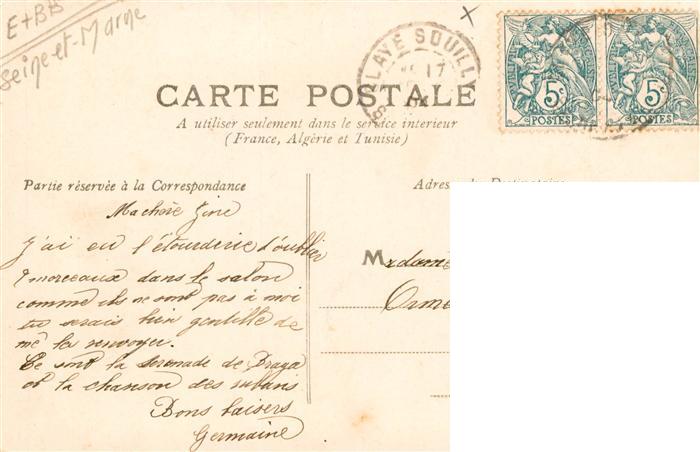 E+BB
Seine-et-Marne
CLAYE SOUILLY
17
CARTE POSTALE
A utiliser seulement dans le service interieur
(France, Algérie et Tunisie)
5c
POSTES
5c
POSTES
Partie réservée à la Correspondance
Ma chère
J'ai eu l'étourderie d'oublier
morceaux dans le salon
comme ils ne sont pas à moi
tu serais bien gentille de
me les renvoyer.
Ce sont la serenade de Braga
et la chanson des rubans
Bons baisers
Germaine
Madame
Orme